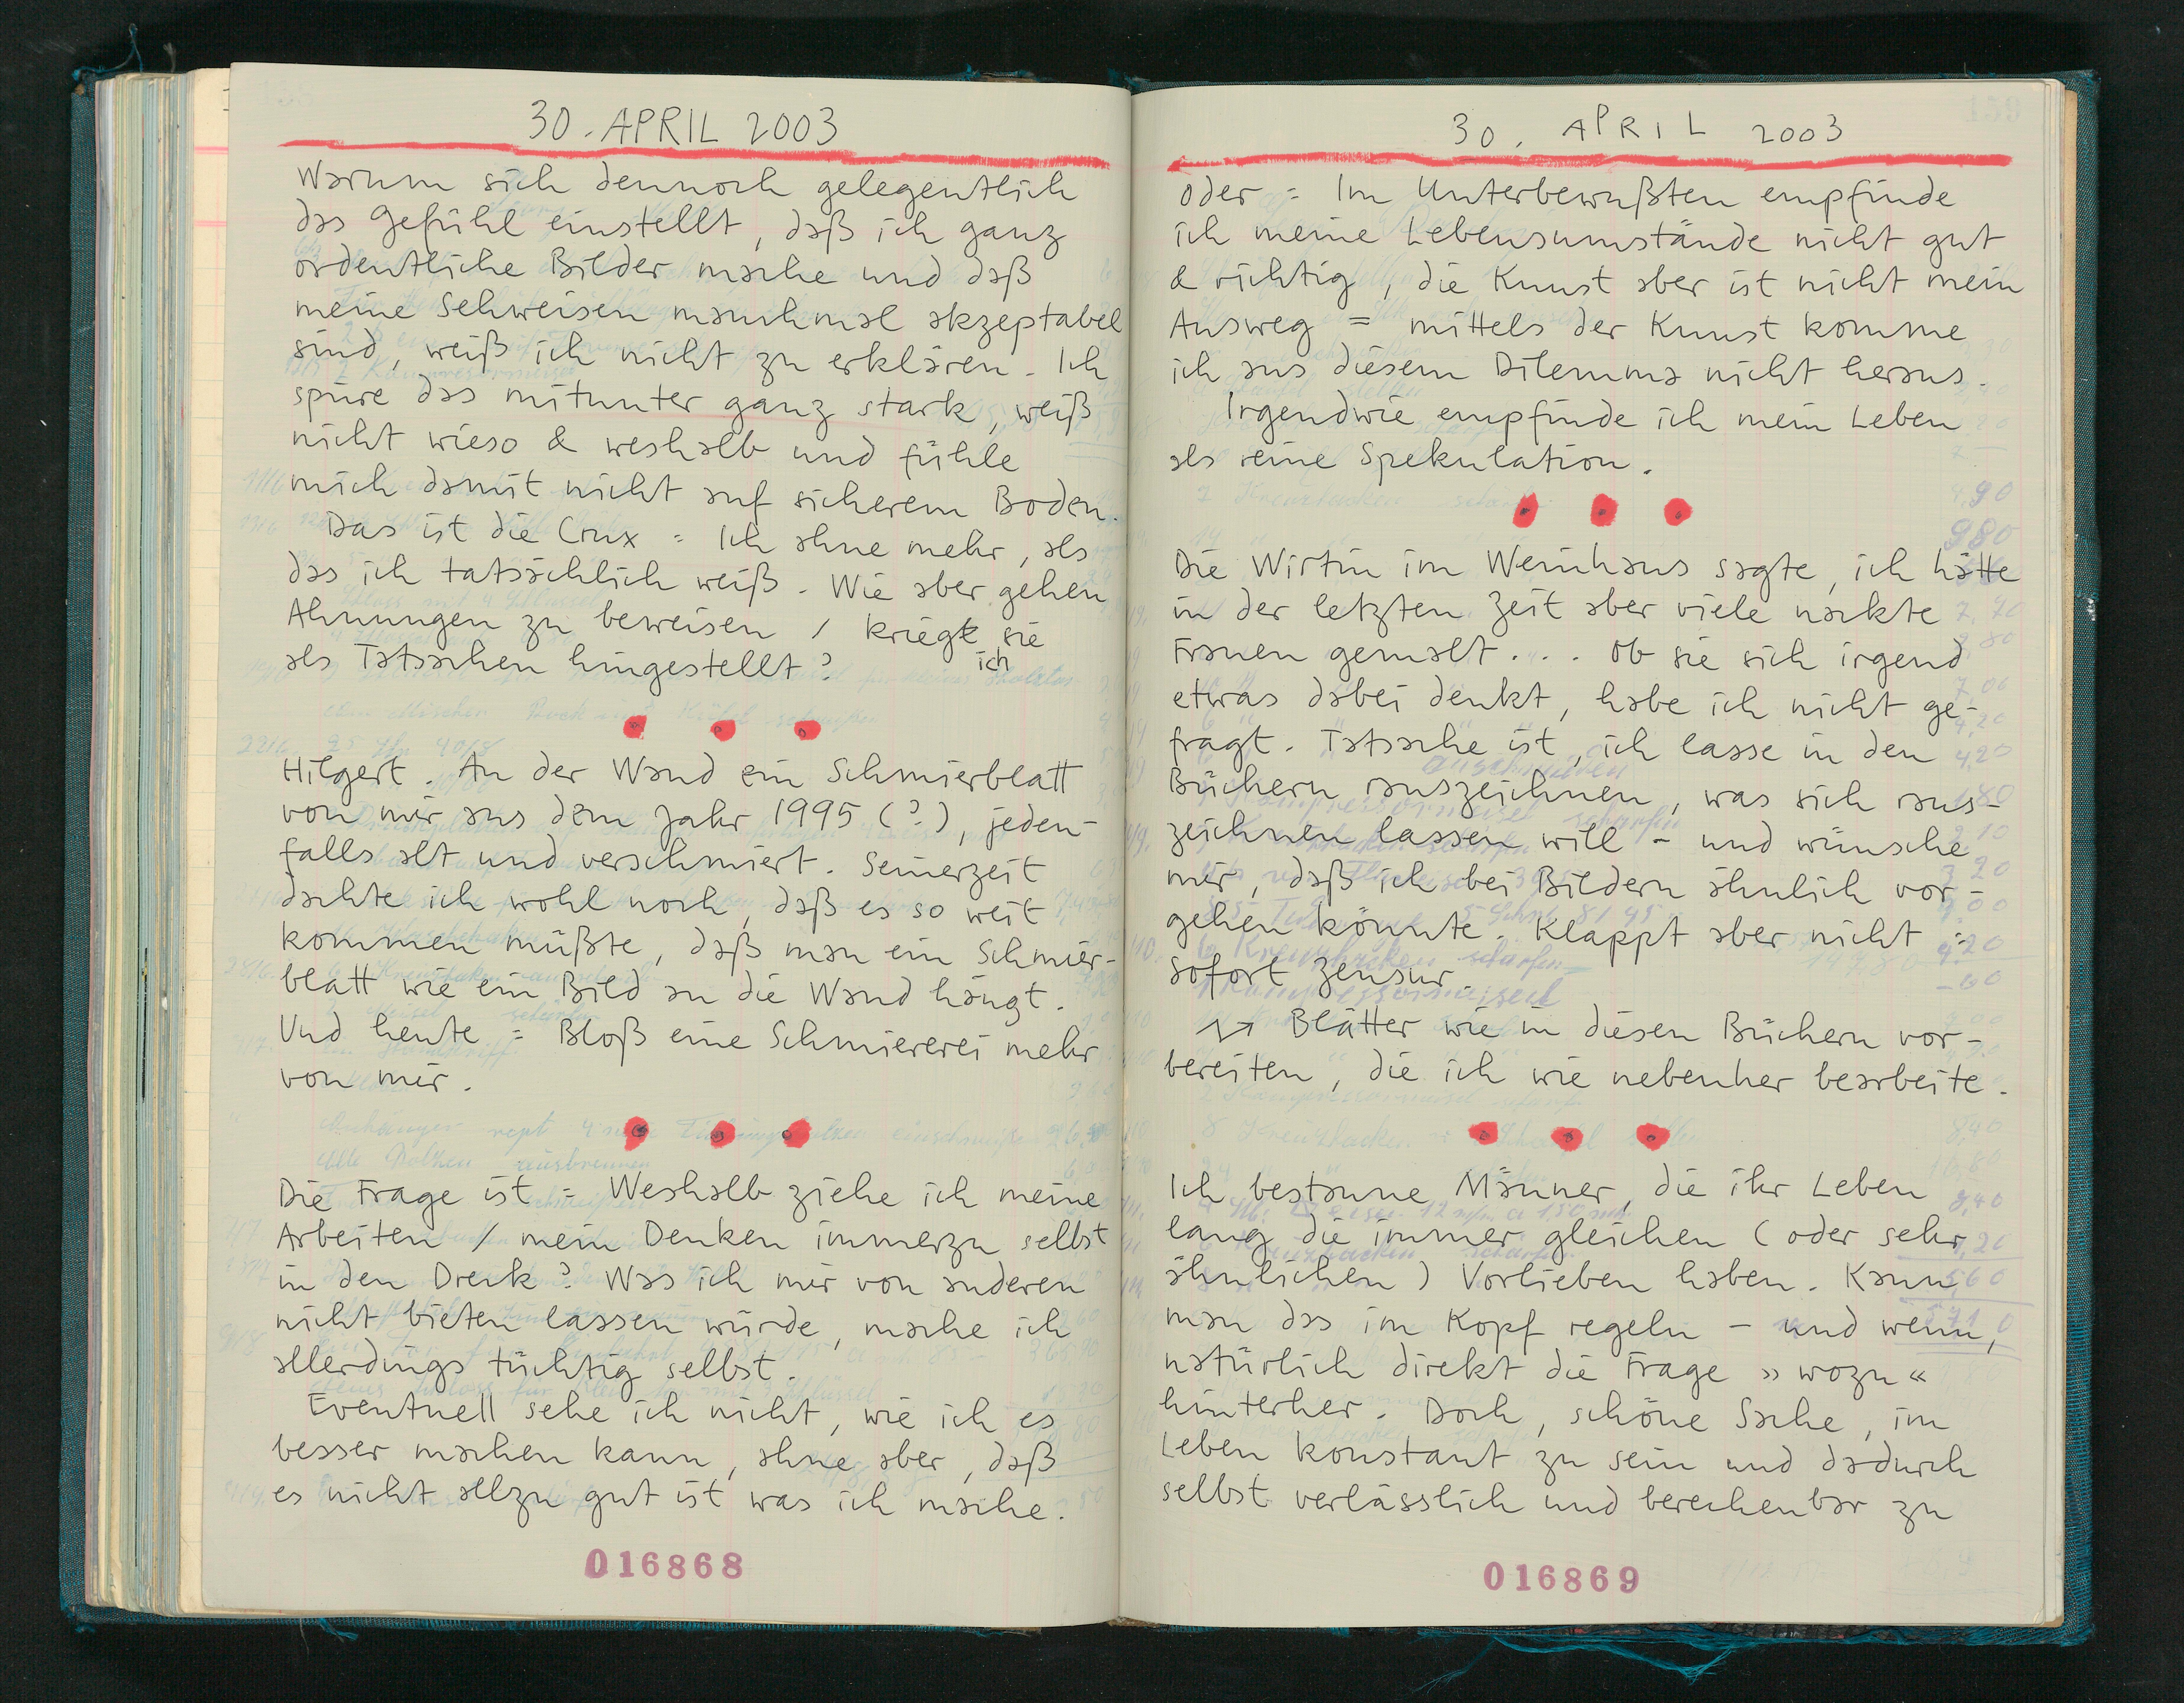 30. APRIL 2003
Warum sich dennoch gelegentlich
das Gefühl einstellt, daß ich ganz
ordentliche Bilder mache und daß
meine Sehweisen manchmal akzeptabel
sind, weiß ich nicht zu erklären. Ich
spüre das mitunter ganz stark, weiß
nicht wieso & weshalb und fühle
mich damit nicht auf sicherem Boden.
Das ist die Crux = Ich ahne mehr, als
das ich tatsächlich weiß. Wie aber gehen
Ahnungen zu beweisen / kriegt sie
ich
als Tatsachen hingestellt?
Hilgert. An der Wand ein Schmierblatt
von mir aus dem Jahr 1995 (?), jeden-
falls alt und verschmiert. Seinerzeit
dachte ich wohl noch, daß es so weit
kommen müßte, daß man ein Schmier-
blatt wie ein Bild an die Wand hängt.
Und heute = Bloß eine Schmiererei mehr
von mir.
Die Frage ist = Weshalb ziehe ich meine
Arbeiten / mein Denken immerzu selbst
in den Dreck? Was ich mir von anderen
nicht bieten lassen würde, mache ich
allerdings tüchtig selbst.
Eventuell sehe ich nicht, wie ich es
besser machen kann, ahne aber, daß
es nicht allzu gut ist was ich mache.
016868
30. APRIL 2003
Oder = Im Unterbewußten empfinde
ich meine Lebensumstände nicht gut
& richtig, die Kunst aber ist nicht mein
Ausweg = mittels der Kunst komme
ich aus diesem Dilemma nicht heraus.
Irgendwie empfinde ich mein Leben
als reine Spekulation.
Die Wirtin im Weinhaus sagte, ich hätte
in der letzten Zeit aber viele nackte
Frauen gemalt... Ob sie sich irgend
etwas dabei denkt, habe ich nicht ge-
fragt. Tatsache ist, ich lasse in den
Büchern rauszeichnen, was sich raus-
zeichnen lassen will - und wünsche
mir, daß ich bei Bildern ähnlich vor-
gehen könnte. Klappt aber nicht =
sofort Zensur.
Blätter wie in diesen Büchern vor-
bereiten, die ich wie nebenher bearbeite.
Ich bestaune Männer, die ihr Leben
lang die immer gleichen (oder sehr
ähnlichen) Vorlieben haben. Kann
man das im Kopf regeln - und wenn,
natürlich direkt die Frage »wozu«
hinterher. Doch, schöne Sache, im
Leben konstant zu sein und dadurch
selbst verlässlich und berechenbar zu
016869